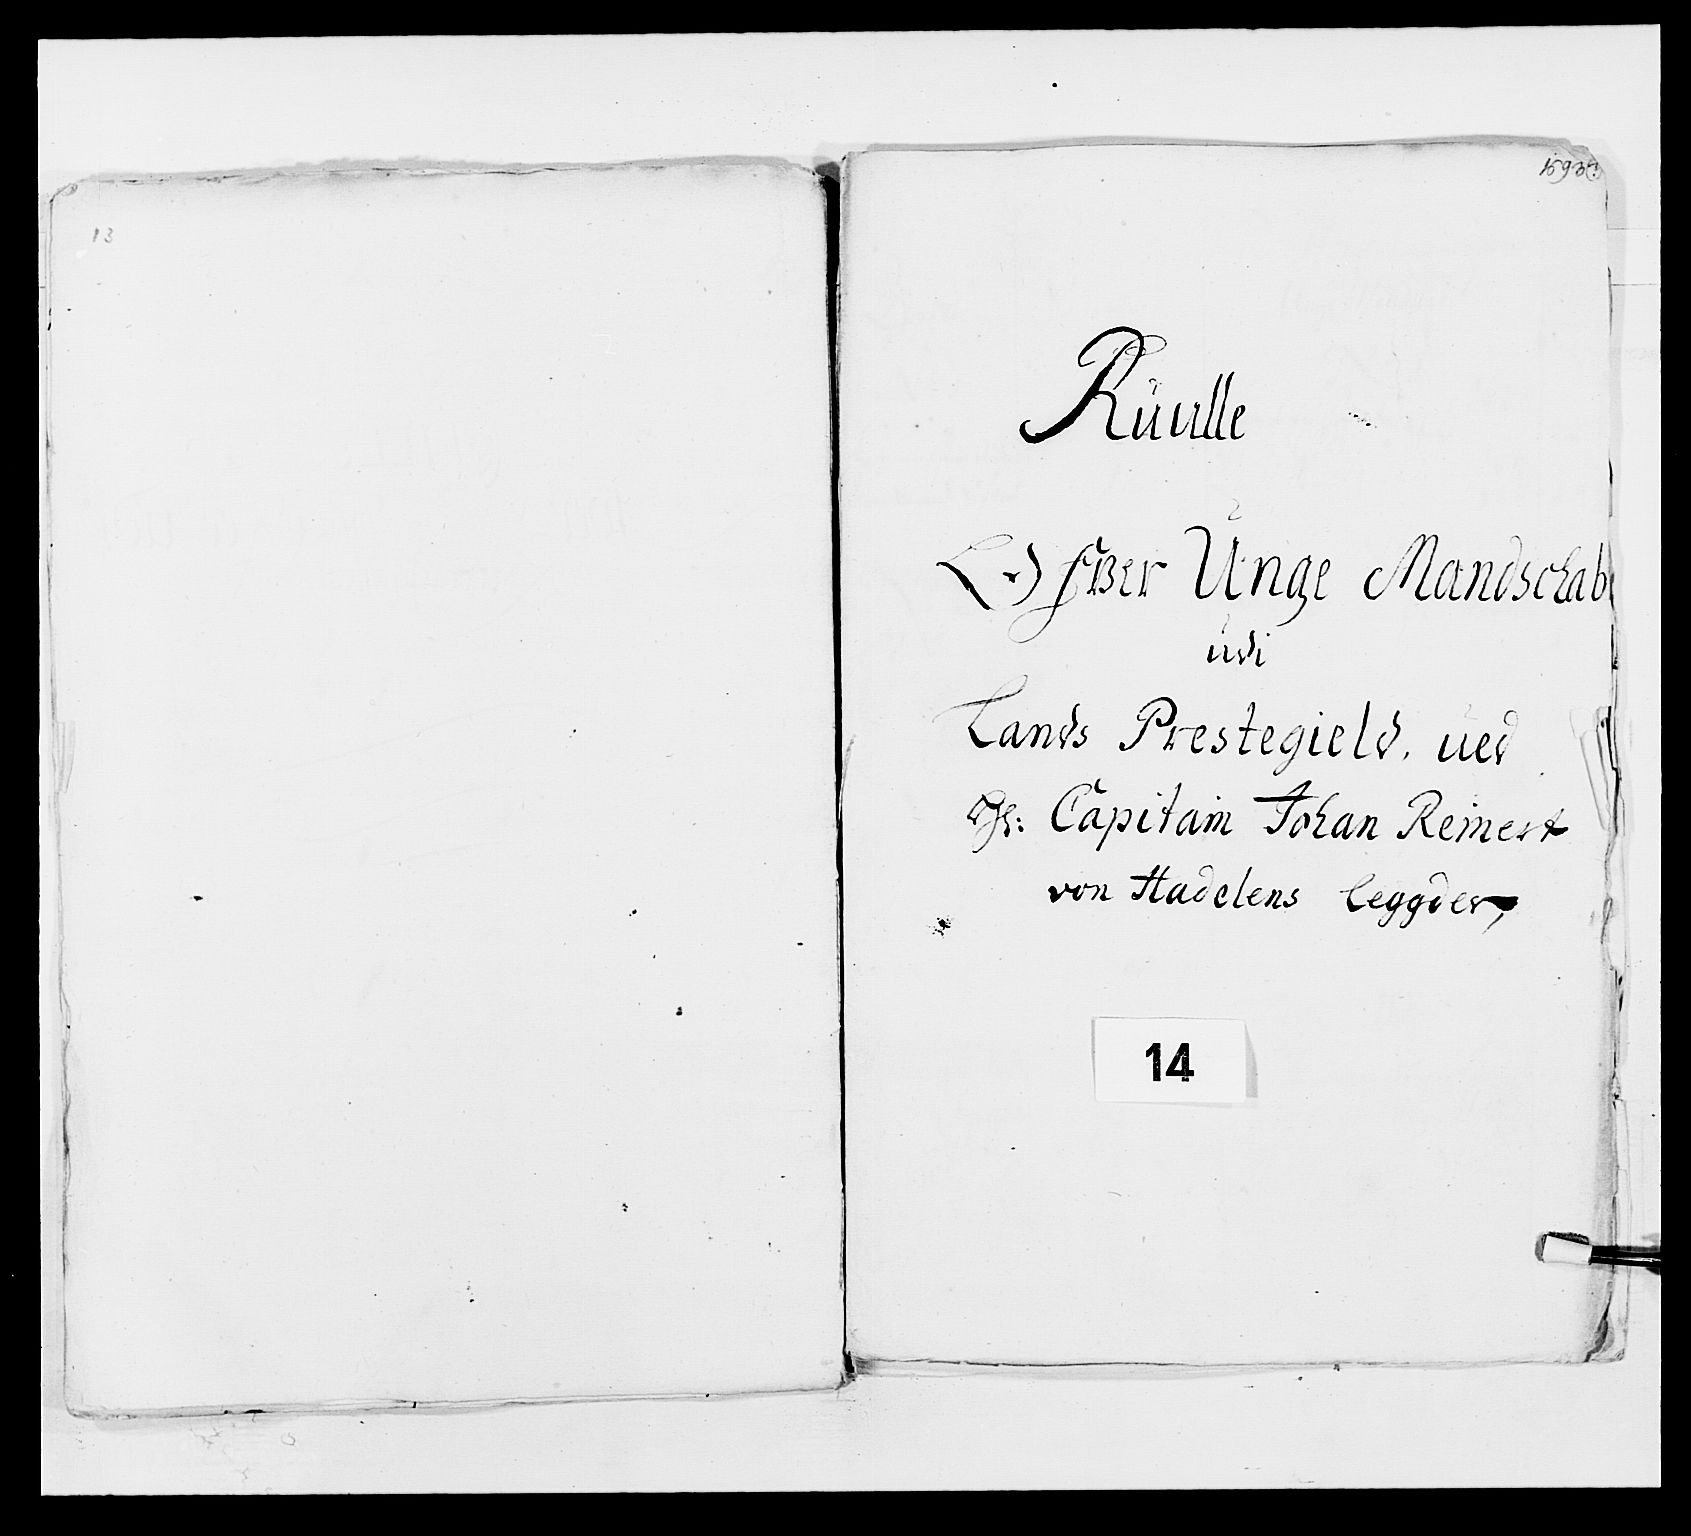 13
Rüulle
Ofver Unge Mandschab
udi
Lands Prestegield, ued
Hr: Capitain Johan Reinert
von Hadelens Leggder,
14